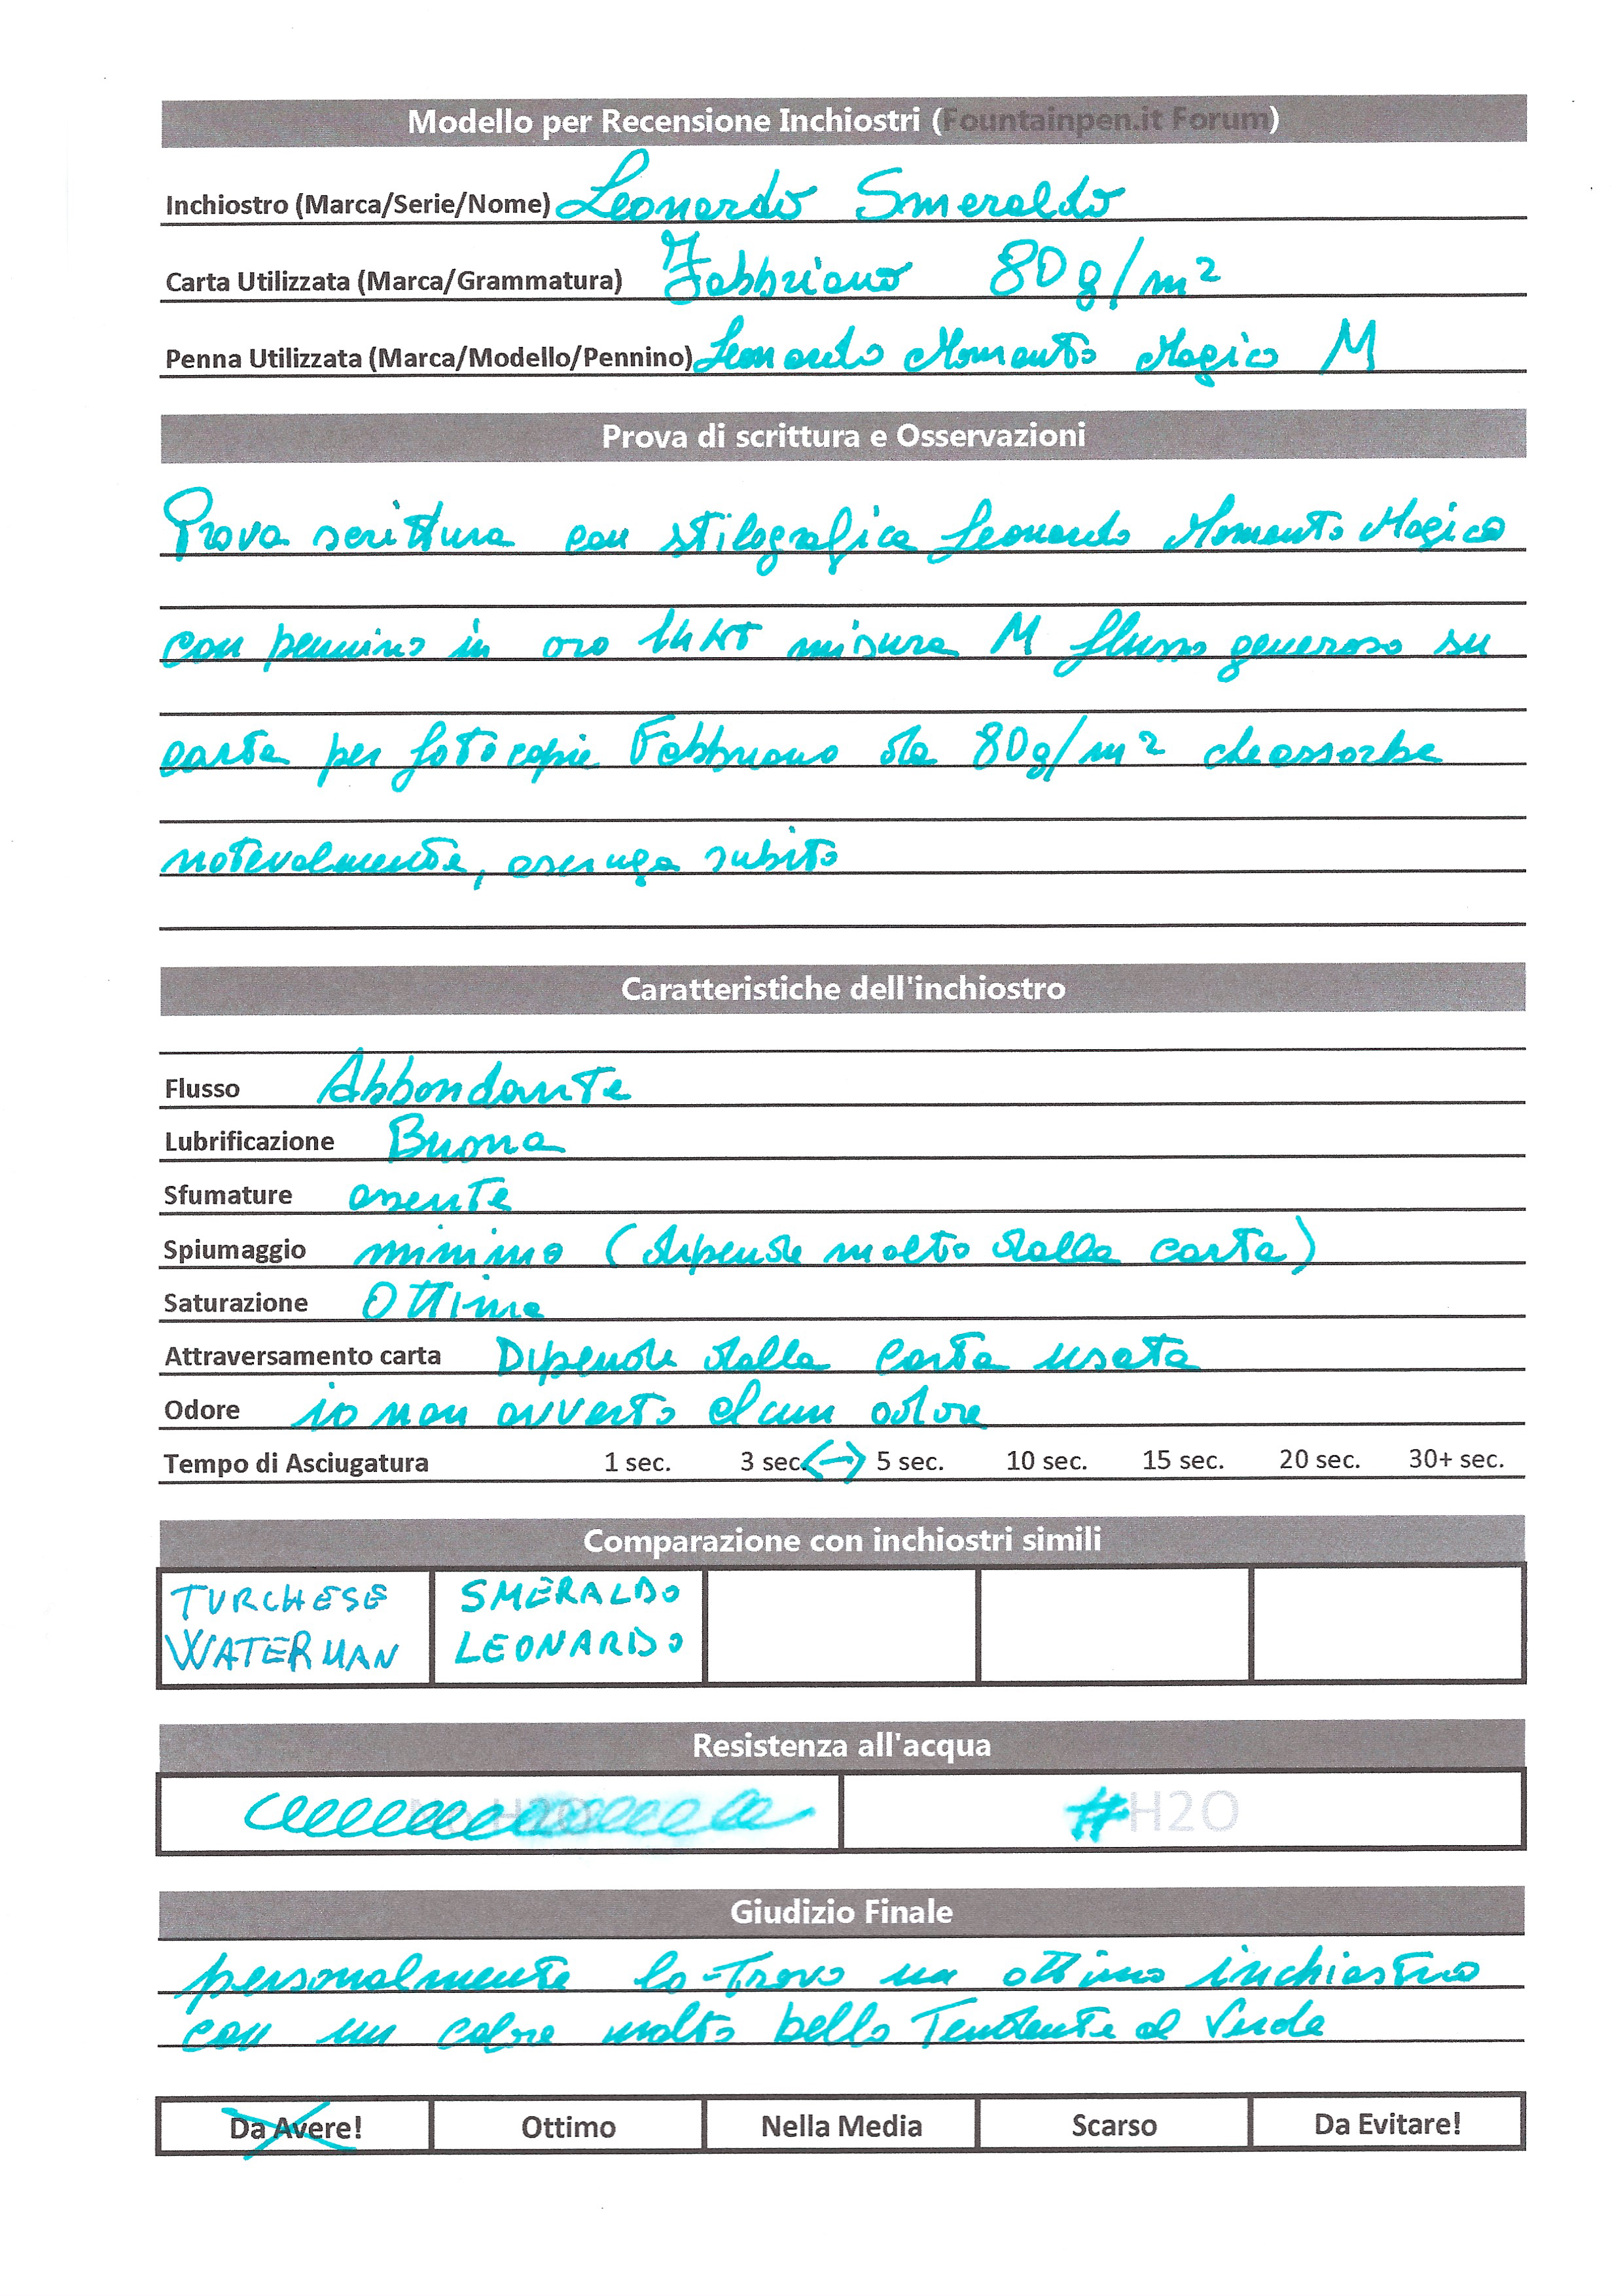 Modello per Recensione Inchiostri (Fountainpen.it Forum)
Inchiostro (Marca/Serie/Nome) Leonardo Smeraldo
Carta Utilizzata (Marca/Grammatura) Fabbriano 80g/m²
Penna Utilizzata (Marca/Modello/Pennino) Leonardo Momento Magico M
Prova di scrittura e Osservazioni
Prova scrittura con stilografica Leonardo Momento Magico
con pennino in oro 14 KT misura M flusso generoso su
carta per fotocopie Fabbriano da 80g/m² che assorbe
notevolmente, asciuga subito
Caratteristiche dell'inchiostro
Flusso Abbondante
Lubrificazione Buona
Sfumature assente
Spiumaggio minimo (dipende molto dalla carta)
Saturazione Ottima
Attraversamento carta Dipende dalla carta usata
Odore io non avverto alcun odore
Tempo di Asciugatura 1 sec. 3 sec. <-> 5 sec. 10 sec. 15 sec. 20 sec. 30+ sec.
Comparazione con inchiostri simili
TURCHESE WATERMAN
SMERALDO LEONARDO
Resistenza all'acqua
# H2O
Giudizio Finale
personalmente lo trovo un ottimo inchiostro
con un colore molto bello Tendente al Verde
Da Avere! Ottimo Nella Media Scarso Da Evitare!